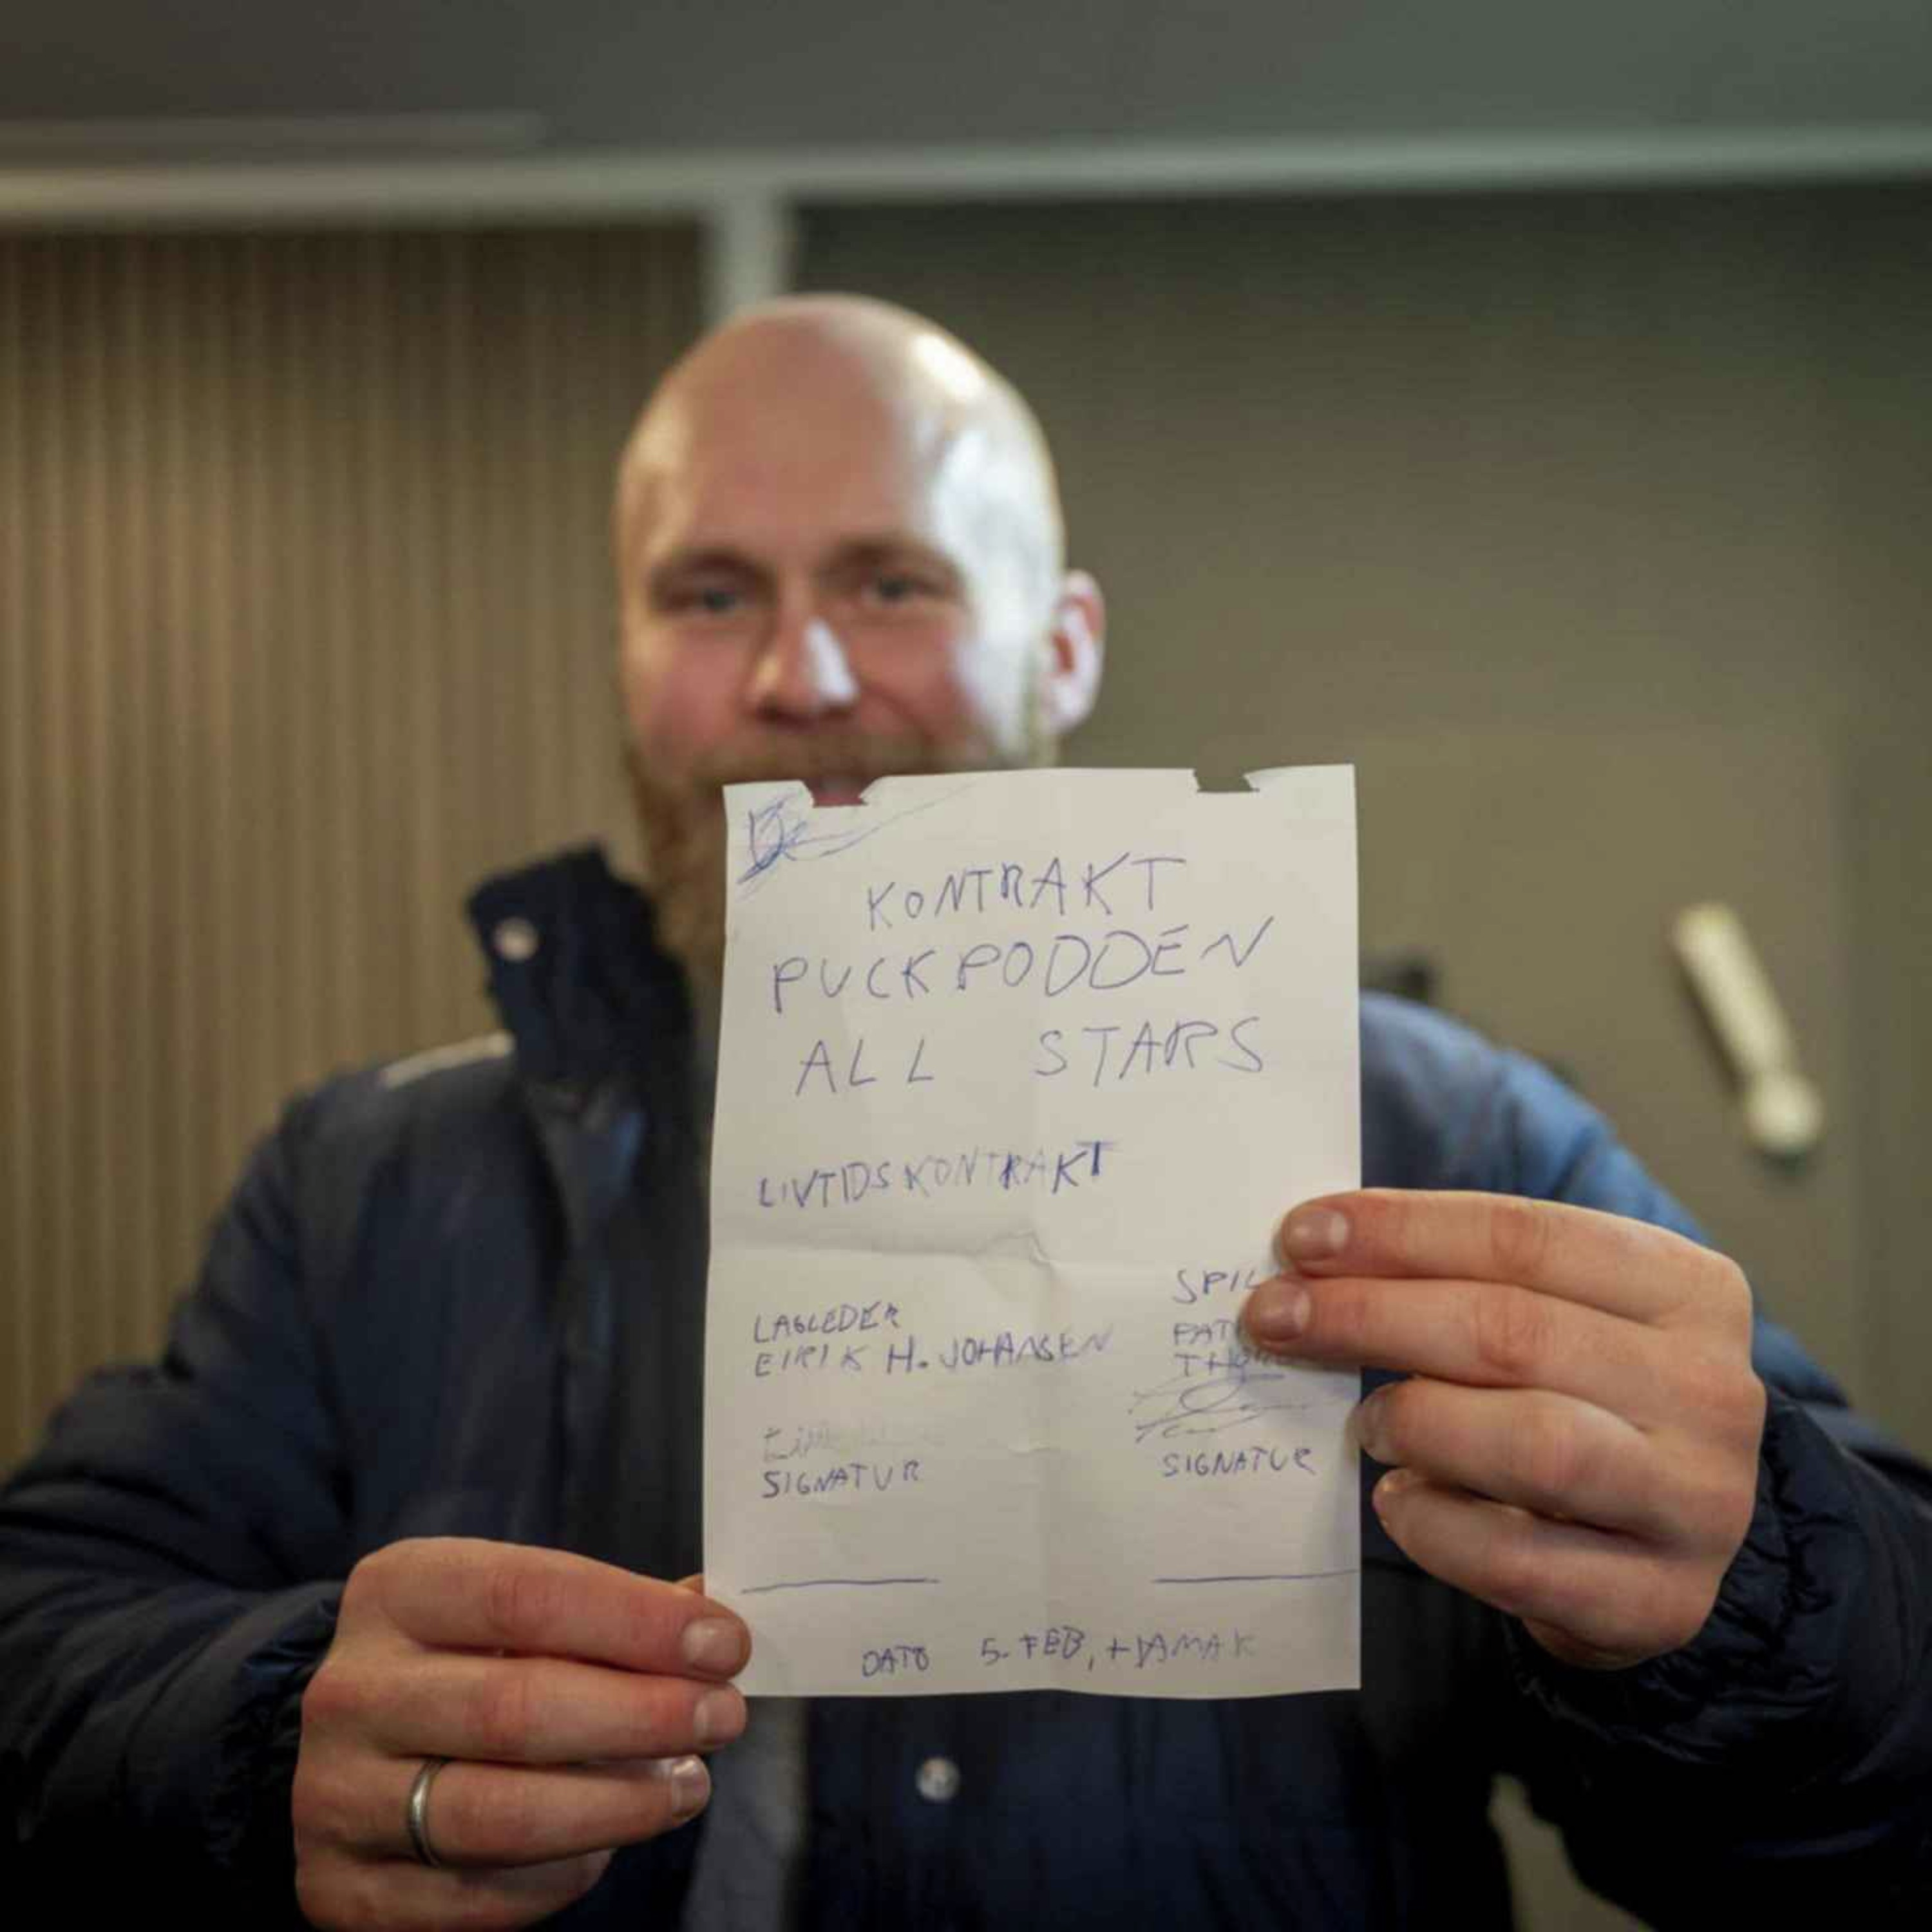 KONTRAKT
PUCKPODDEN
ALL STARS
LIVTIDSKONTRAKT
LAGLEDER
EIRIK H. JOHANSEN
SIGNATUR
SPIL
PAT
TH
SIGNATUR
DATO 5. FEB,